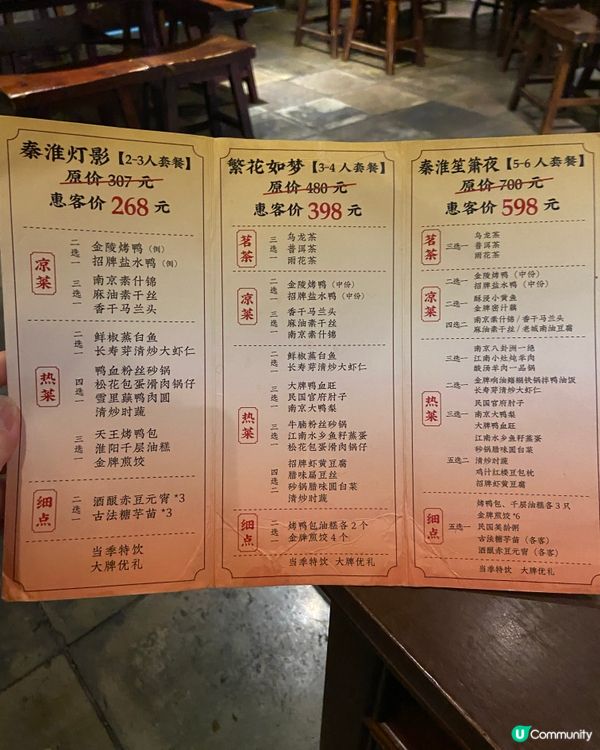 秦淮灯影【2-3人套餐】
原价 307 元
惠客价 268 元
凉菜
二选一
金陵烤鸭（例）
招牌盐水鸭（例）
三选一
南京素什锦
麻油素干丝
香干马兰头
热菜
二选一
鲜椒蒸白鱼
长寿芽清炒大虾仁
四选二
鸭血粉丝砂锅
松花包蛋滑肉锅仔
雪里蕻鸭肉圆
清炒时蔬
三选一
天王烤鸭包
淮阳千层油糕
金牌煎饺
细点
二选一
酒酿赤豆元宵 *3
古法糖芋苗 *3
当季特饮
大牌优礼
繁花如梦【3-4 人套餐】
原价 480 元
惠客价 398 元
茗茶
三选一
乌龙茶
普洱茶
雨花茶
凉菜
二选一
金陵烤鸭（中份）
招牌盐水鸭（中份）
三选一
香干马兰头
麻油素干丝
南京素什锦
热菜
二选一
鲜椒蒸白鱼
长寿芽清炒大虾仁
三选一
大牌鸭血旺
民国官府肘子
南京大鸭梨
三选一
牛腩粉丝砂锅
江南水乡鱼籽蒸蛋
松花包蛋滑肉锅仔
四选二
招牌虾黄豆腐
腊味扁豆丝
砂锅腊味圆白菜
清炒时蔬
细点
二选一
烤鸭包油糕各 2 个
金牌煎饺 4 个
当季特饮 大牌优礼
秦淮笙箫夜【5-6 人套餐】
原价 700 元
惠客价 598 元
茗茶
三选一
乌龙茶
普洱茶
雨花茶
凉菜
二选一
金陵烤鸭（中份）
招牌盐水鸭（中份）
二选一
酥浸小黄鱼
金牌密汁藕
四选二
南京素什锦 / 香干马兰头
麻油素干丝 / 老城南油豆腐
热菜
三选一
南京八卦洲一绝
江南小灶炖羊肉
酸汤羊肉一品锅
二选一
金牌响油鳝糊铁锅拌鸭油饭
长寿芽清炒大虾仁
三选一
民国官府肘子
南京大鸭梨
大牌鸭血旺
五选二
江南水乡鱼籽蒸蛋
砂锅腊味圆白菜
清炒时蔬
鸡汁红楼豆包枕
招牌虾黄豆腐
细点
五选一
烤鸭包、千层油糕各 3 只
金牌煎饺 *6
民国美龄粥
古法糖芋苗（各客）
酒酿赤豆元宵（各客）
当季特饮 大牌优礼
U Community